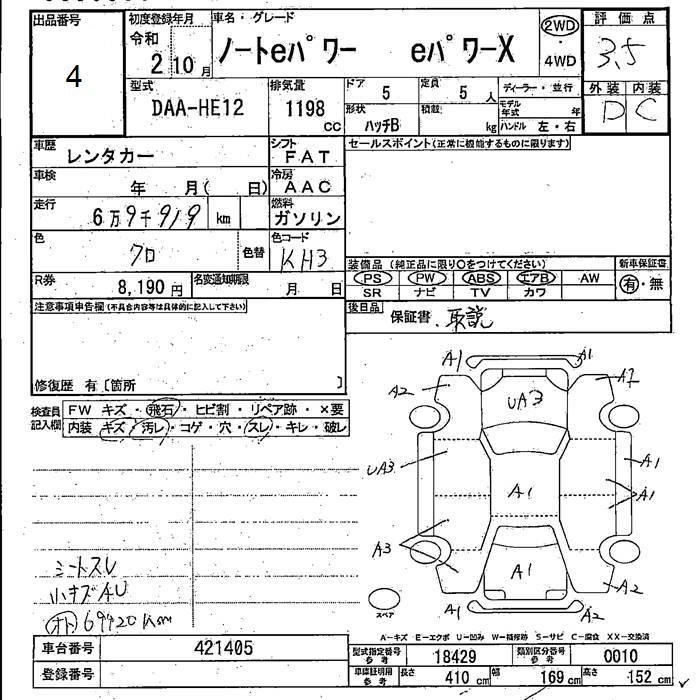 出品番号
4
初度登録年月
令和
2 10月
車名・グレード
ノートeパワー eパワーX
2WD
・
4WD
評価点
3.5
型式
DAA-HE12
排気量
1198
cc
ドア
5
定員
5 人
ディーラー・並行
外装 内装
D C
形状
ハッチB
積載
kg
モデル年式 年
ハンドル 左・右
車歴
レンタカー
シフト
FAT
セールスポイント(正常に機能するものに限ります)
車検
年 月( 日)
冷房
AAC
走行
6万9千919 km
燃料
ガソリン
色
クロ
色替
色コード
KH3
装備品 (純正品に限り〇をつけてください)
新車保証書
PS PW ABS エアB AW
有・無
SR ナビ TV カワ
R券
8,190 円
名変通知期限
月 日
後日品
保証書、取説
注意事項申告欄(不具合内容等は具体的に記入して下さい)
修復歴 有〔箇所 〕
検査員
記入欄
FW キズ・飛石・ヒビ割・リペア跡・×要
内装 キズ・汚レ・コゲ・穴・スレ・キレ・破レ
A1 A1
A2 A1
UA3
UA3 A1
A1 A1
A3
A1
A2
A1 A2
スペア
シートスレ
小キズAU
オト 69920km
A-キズ E-エクボ U-凹み W-補修跡 S-サビ C-腐食 XX-交換済
車台番号
421405
型式指定番号
参考
18429
類別区分番号
参考
0010
登録番号
車庫証明用
参考
長さ 410 cm
幅 169 cm
高さ 152 cm